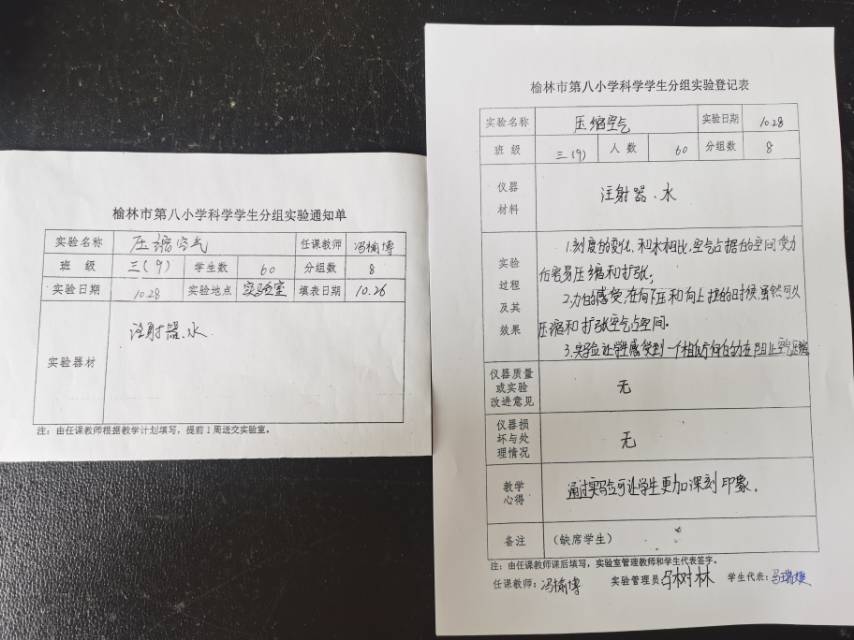 榆林市第八小学科学学生分组实验通知单
实验名称 压缩空气 任课教师 冯楠博
班 级 三(9) 学生数 60 分组数 8
实验日期 10.28 实验地点 实验室 填表日期 10.26
实验器材 注射器、水
注:由任课教师根据教学计划填写,提前1周送交实验室。
榆林市第八小学科学学生分组实验登记表
实验名称 压缩空气 实验日期 10.28
班 级 三(9) 人 数 60 分组数 8
仪器
材料
注射器、水
实验
过程
及其
效果
1.刻度的变化,和水相比,空气占据的空间受力
后容易压缩和扩张;
2.力的感受,在向下压和向上拉的时候,虽然可以
压缩和扩张空气占空间.
3.实验让学生感受到一个相反方向的力在阻止空气压缩
仪器质量
或实验
改进意见
无
仪器损
坏与处
理情况
无
教学
心得
通过实验可让学生更加深刻印象.
备注 (缺席学生)
注:由任课教师课后填写,实验室管理教师和学生代表签字。
任课教师:冯楠博 实验管理员 石树林 学生代表:马